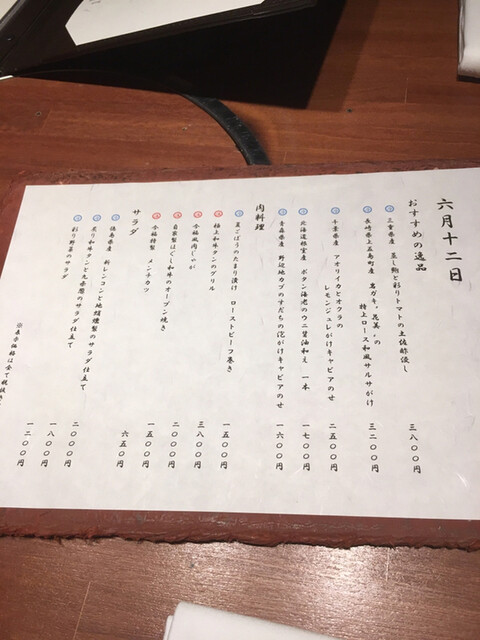 六月十二日
おすすめの逸品
三重県産 蒸し鮑と彩りトマトの土佐酢流し 三八〇〇円
長崎県上五島町産 岩ガキ
特上ロース和風サルサがけ 三二〇〇円
千葉県産 アオリイカとオクラの
レモンジュレがけキャビアのせ 二五〇〇円
北海道根室産 ボタン海老のウニ醤油和え 一本 一七〇〇円
青森県産 野辺地カブのすだちの泡がけキャビアのせ 一六〇〇円
肉料理
葉ごぼうのたまり漬け ローストビーフ巻き 一五〇〇円
極上和牛タンのグリル 三八〇〇円
今福風肉じゃが 一八〇〇円
自家製はぐくみ和牛のオーブン焼き 二〇〇〇円
今福特製 メンチカツ 一五〇〇円
サラダ
徳島県産 新レンコンと地鶏燻製のサラダ仕立て 六五〇円
炙り和牛タンと九条葱のサラダ仕立て 二〇〇〇円
彩り野菜のサラダ 一八〇〇円
一二〇〇円
※表示価格は全て税抜き